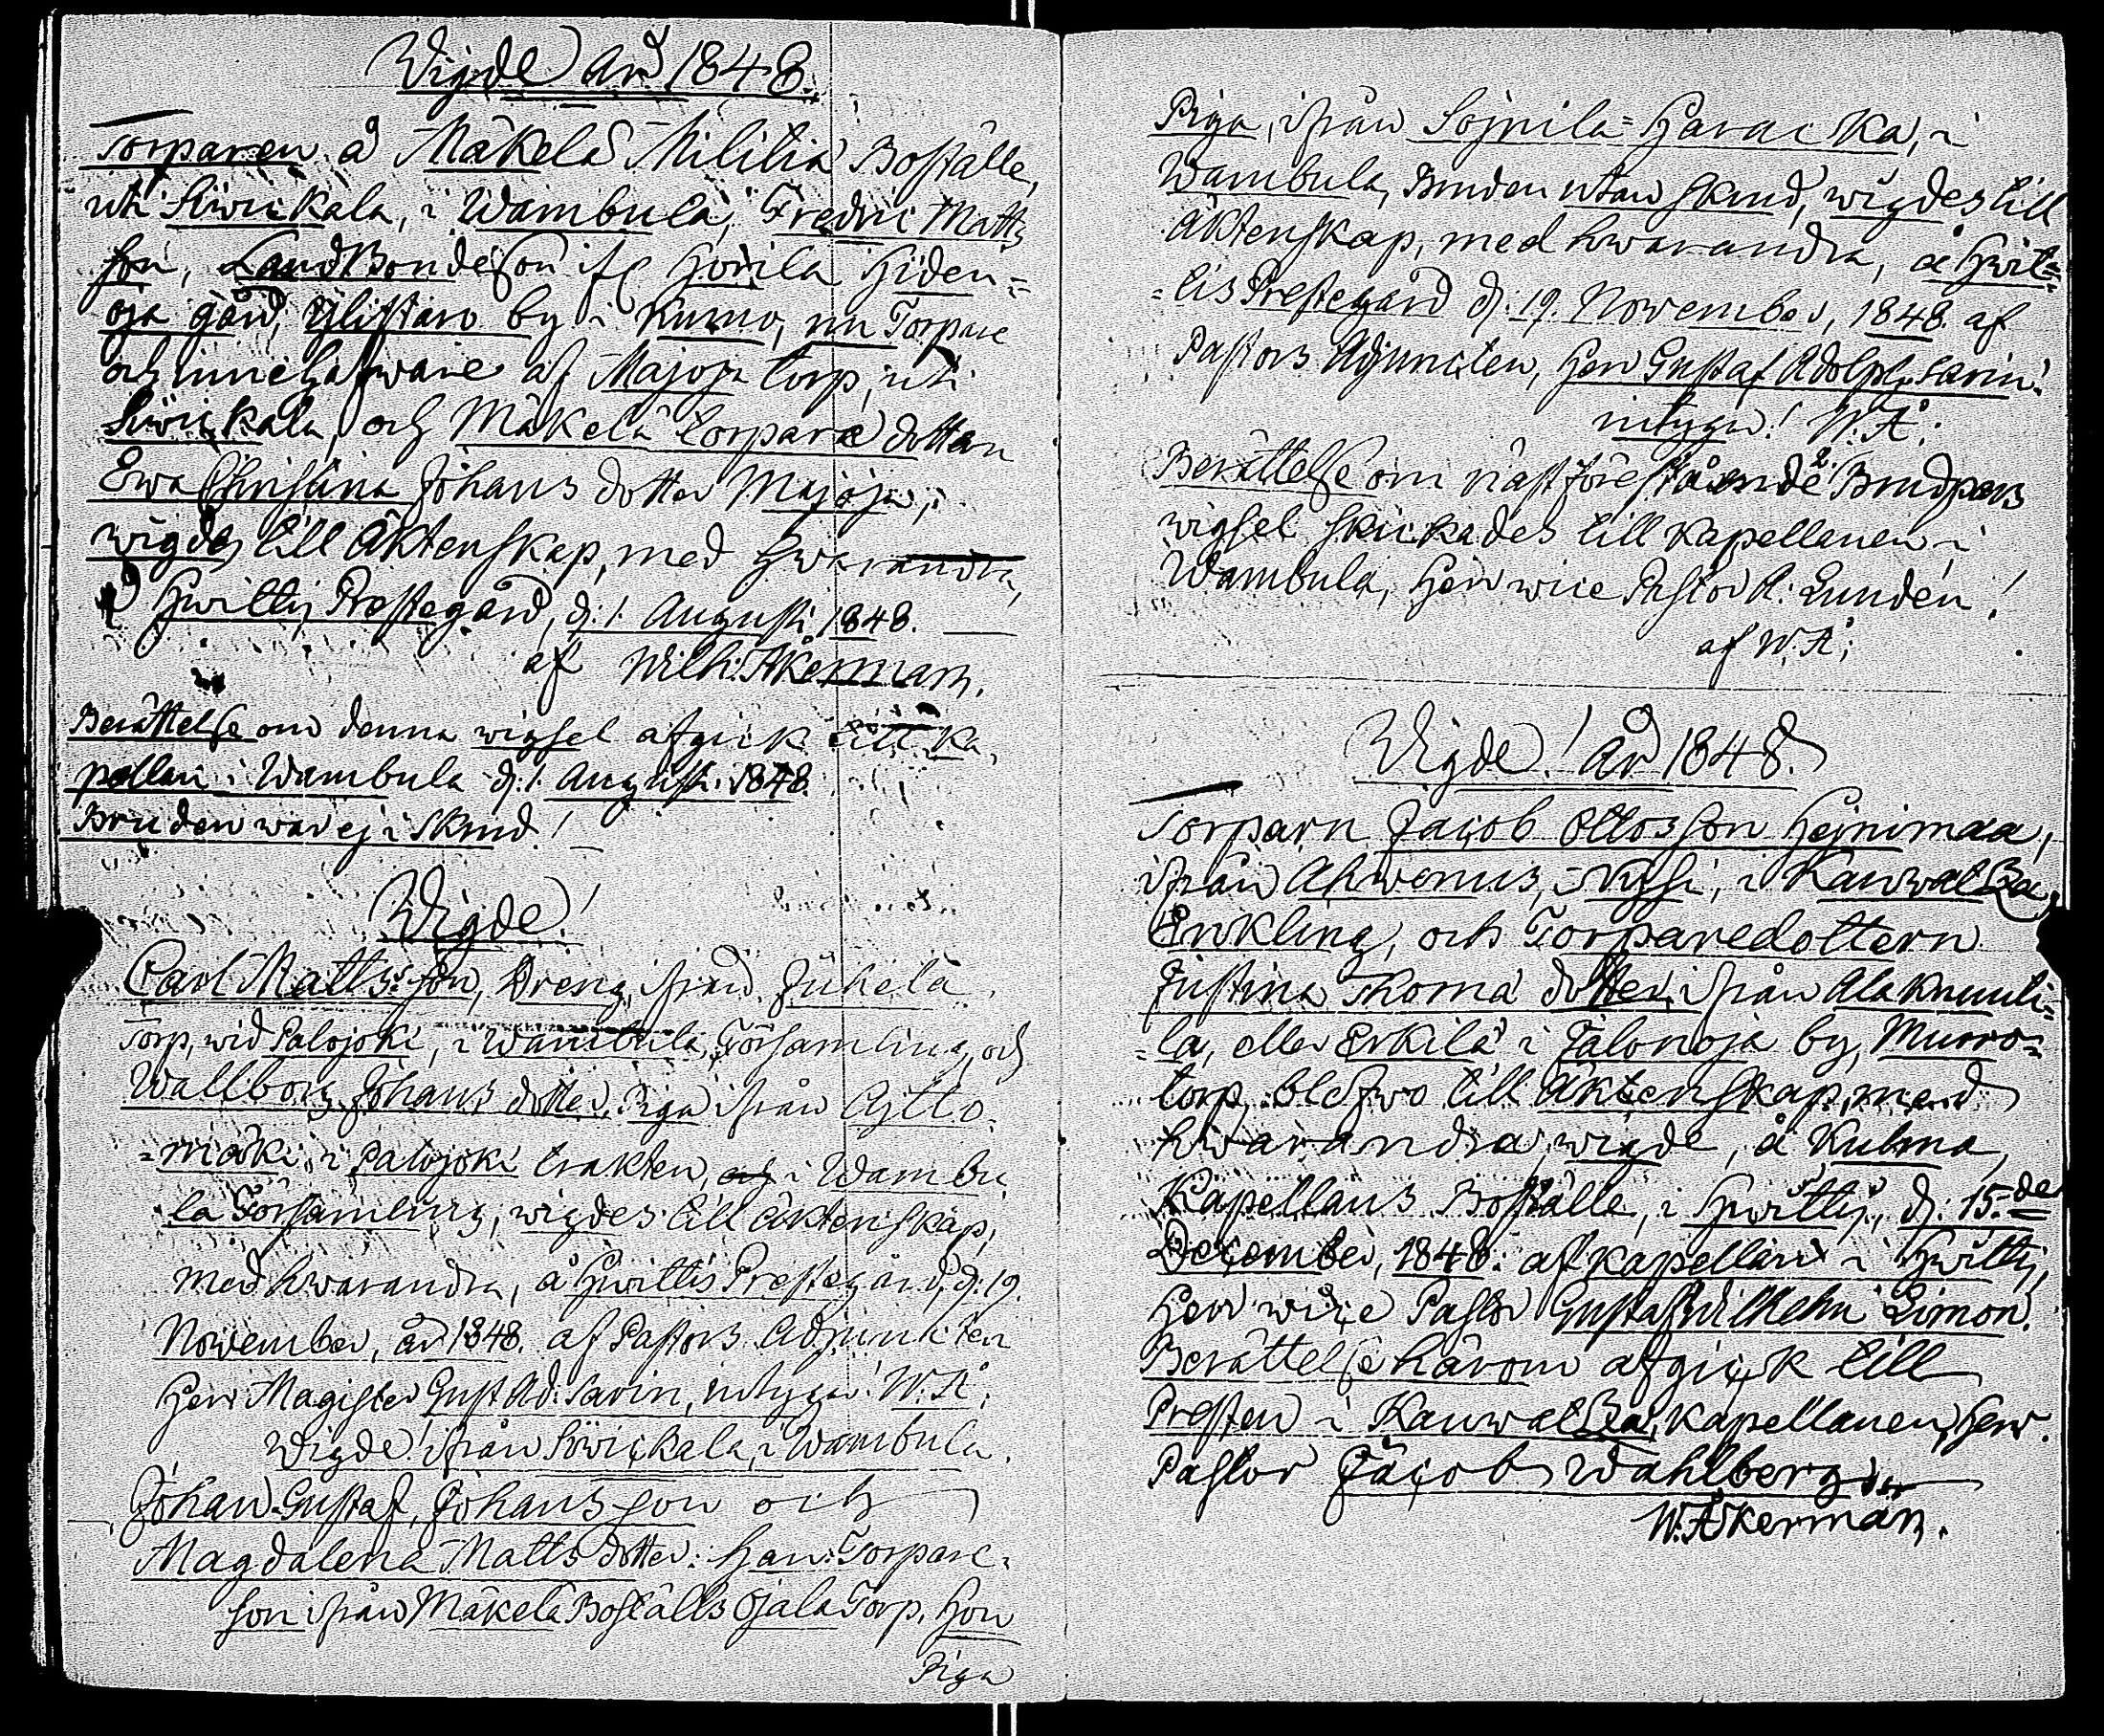 Wigde år 1848.
Torparen å Mäkelä Militiä Boställe,
uti Säwickala, i Wambula, Fredric Matts
son, LandBondeson ifr Horila Hiden=
oja gård, Ylistaro by i Kumo, nu Torpare
och innehafware af Majoja torp, uti
Säwickala, och Mäkelä torpare dottern
Ewa Christina Johans dotter Majoja,
wigdes till Äktenskap, med hwarandra,
å Hwittis Prestegård, d: 1. Augusti 1848.
af Wilh: Åkerman.
Berättelse om denna wigsel afgick till Ka,
pellan i Wambula d: 1. Augusti 1848.
Bruden war ej i Skrud!
Wigde!
Carl Matts son, Dreng, ifrån Juhela
Torp, wid Palojoki, i Wambula Församling, och
Wallborg Johans dotter, Piga ifrån Cytto
=mäki, i Palojoki trakten, i Wambu
la Församling, wigdes till äktenskap,
med hwarandra, å Hwittis Prestegård, d: 19.
November, år 1848. af Pastors Adjuncten
Herr Magister Gust. Ad. Savin, intygar! W. Å.
Wigde! ifrån Säwickala, i Wambula.
Johan Gustaf Johansson och
Magdalena Matts dotter: Han: Torpare=
son ifrån Mäkelä Boställs Ojala Torp, Hon
Piga
Piga, ifrån Sojnila=Haracka, i
Wambula, Bruden utan skrud, wigdes till
äktenskap, med hwarandra, å Hwit=
=tis Prestegård d: 19. November, 1848. af
Pastors Adjuncten, Herr Gustaf Adolph Savin!
intygar! W. Å.
Berättelse om näst föreståande 2 Brudpars
wigsel skickades till Kapellanen i
Wambula, Herr wice Pastor A: Lunden!
af W. Å;
Wigde! år 1848.
Torparn Jacob Ottosson Hejnimaa,
ifrån Ahwenus, i Kauwatsa,
Enkling, och Torparedottern
Justina Thomä dotter, ifrån Alaknuuti=
=la, eller Erkilä i Jalonoja by, Murro=
torp, blefwo till Äktenskap, med
hwarandra wigde, å Kulma,
Kapellans Boställe, i Hwittis, d: 15:de
December, 1848. af Kapellan i Hwittis,
Herr wice Pastor Gustaf Wilhelm Limon.
Berättelse härom afgick till
Presten i Kauwatsa, Kapellanen, Herr
Pastor Jacob Wahlberg
W. Åkerman.